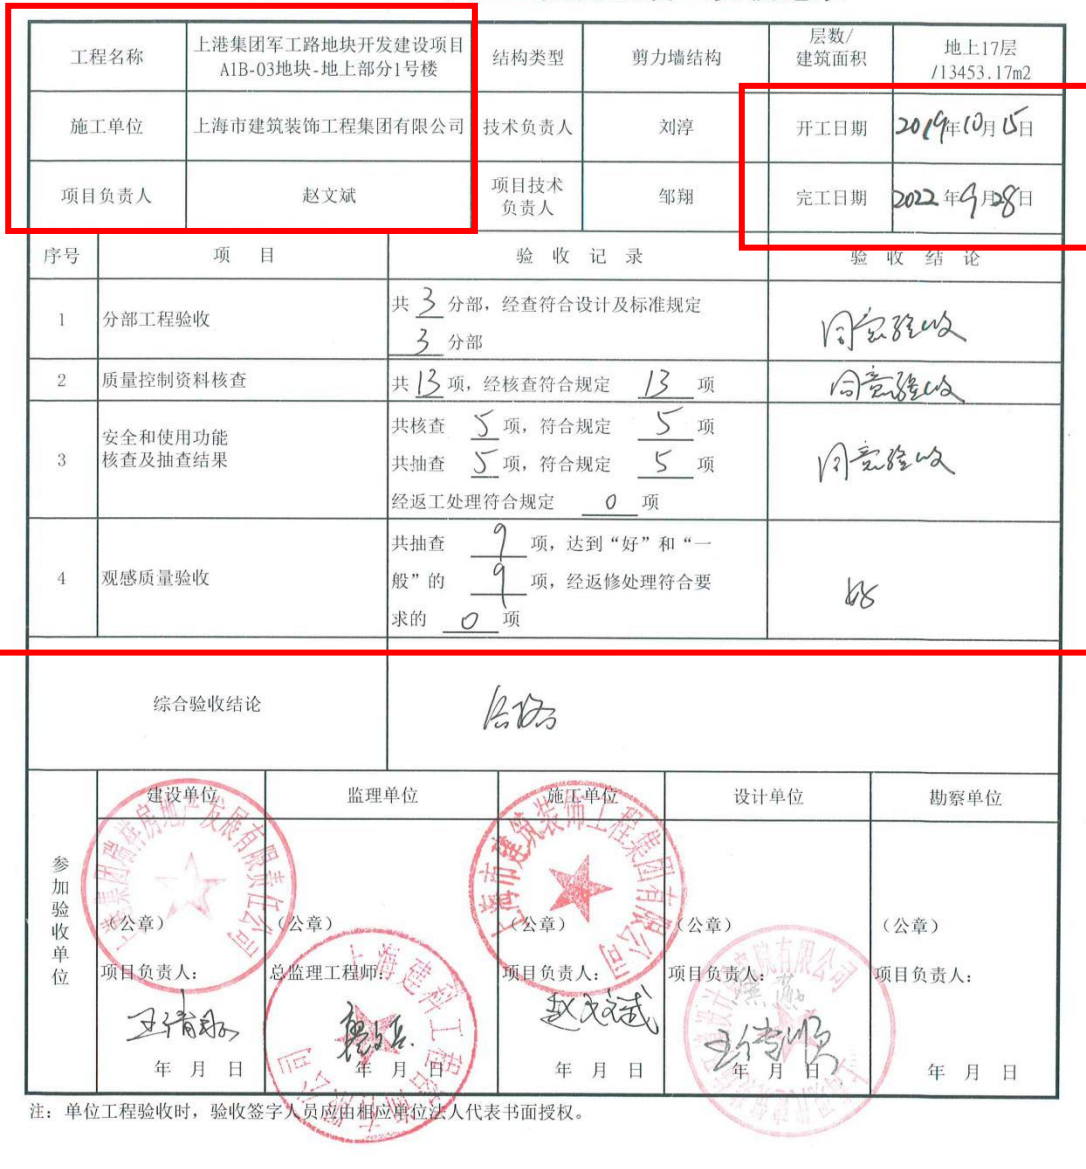 工程名称 上港集团军工路地块开发建设项目A1B-03地块-地上部分1号楼 结构类型 剪力墙结构 层数/建筑面积 地上17层/13453.17m2
施工单位 上海市建筑装饰工程集团有限公司 技术负责人 刘淳 开工日期 2019年10月15日
项目负责人 赵文斌 项目技术负责人 邹翔 完工日期 2022年9月28日
序号 项 目 验 收 记 录 验 收 结 论
1 分部工程验收 共 3 分部，经查符合设计及标准规定 3 分部 同意验收
2 质量控制资料核查 共 13 项，经核查符合规定 13 项 同意验收
3 安全和使用功能核查及抽查结果 共核查 5 项，符合规定 5 项 同意验收
共抽查 5 项，符合规定 5 项
经返工处理符合规定 0 项
4 观感质量验收 共抽查 9 项，达到“好”和“一
般”的 9 项，经返修处理符合要 好
求的 0 项
综合验收结论 合格
参加验收单位 建设单位 监理单位 施工单位 设计单位 勘察单位
（公章） （公章） （公章） （公章） （公章）
项目负责人： 总监理工程师： 项目负责人： 项目负责人： 项目负责人：
赵文斌
年 月 日 年 月 日 年 月 日 年 月 日 年 月 日
上海市建筑装饰工程集团有限公司
注：单位工程验收时，验收签字人员应由相应单位法人代表书面授权。